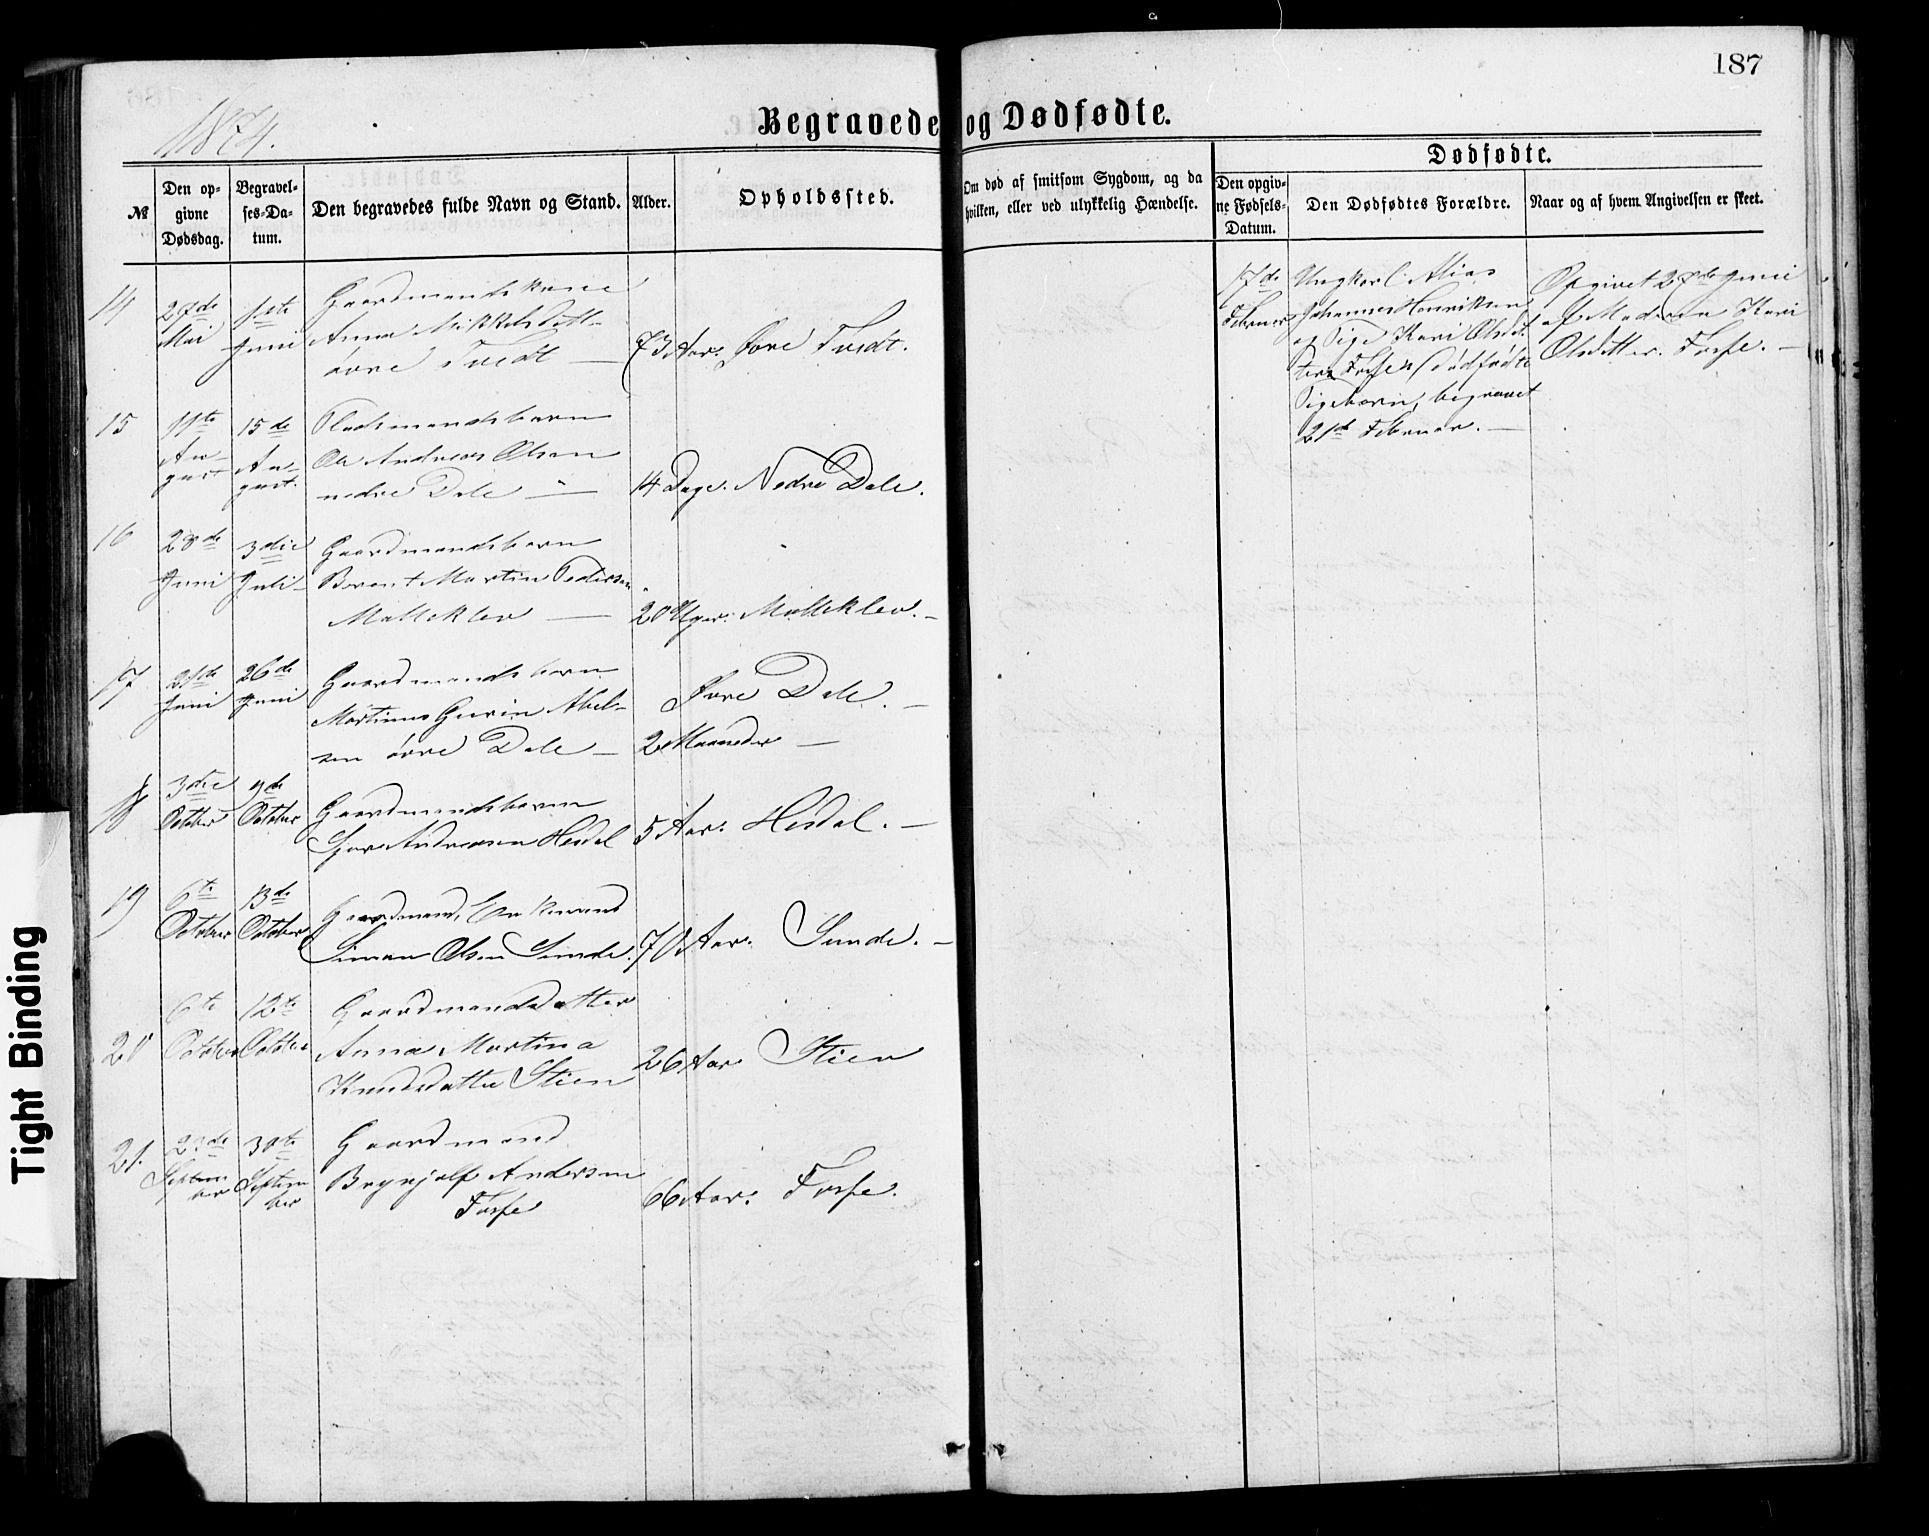 187
1874.
Begravede og Dødfødte.
Dødfødte.
№
Den op-
givne
Dødsdag.
Begravel-
ses-Da-
tum.
Den begravedes fulde Navn og Stand.
Alder.
Opholdssted.
Om død af smitsom Sygdom, og da
hvilken, eller ved ulykkelig Hændelse.
Den opgiv-
ne Fødsels-
Datum.
Den Dødfødtes Forældre.
Naar og af hvem Angivelsen er skeet.
14
27de
Mai
1ste
Juni
Gaardmandskone
Anna Mikkelsdatt-
övre Tvedt —
73 Aar.
Övre Tvedt.
17de
Februar
Ungkarl Alias
Johannes Henriksen
og Pige Kari Olsdat
ters Fosse Dødfødte
Pigebarn, begravet
21de Februar. —
Opgivet 27de Juni
af Moderen Kari
Olsdatter. Fosse. —
15
11te
Au-
gust
15de
Au-
gust.
Pladsmandsbarn
Ole Andreas Olsen
nedre Dale —
14 Dage.
Nedre Dale.
16
28de
Juni
3die
Juli
Gaardmandsbarn
Berent Martin Pedersen
Molleklev —
20 Uger.
Molleklev. —
17
21de
Juni
26de
Juni
Gaardmandsbarn
Martinus Gurin Abel-
sen övre Dale —
2 Maaneder —
Övre Dale. —
18
3die
October
9de
October
Gaardmandsbarn
Andreasen Hesdal
5 Aar.
Hesdal. —
19
6te
October
13de
October
Gaardmand, Enkemand
Simon Olsen Sunde.
70 Aar.
Sunde. —
20
6te
October
12te
October
Gaardmandsdatter
Anna Martina
Knudsdatter Stien
26 Aar.
Stien
21.
23de
Septem
ber
30te
Septem
ber
Gaardmand
Brynjolf Andersen
Fosse
66 Aar.
Fosse.
Tight Binding